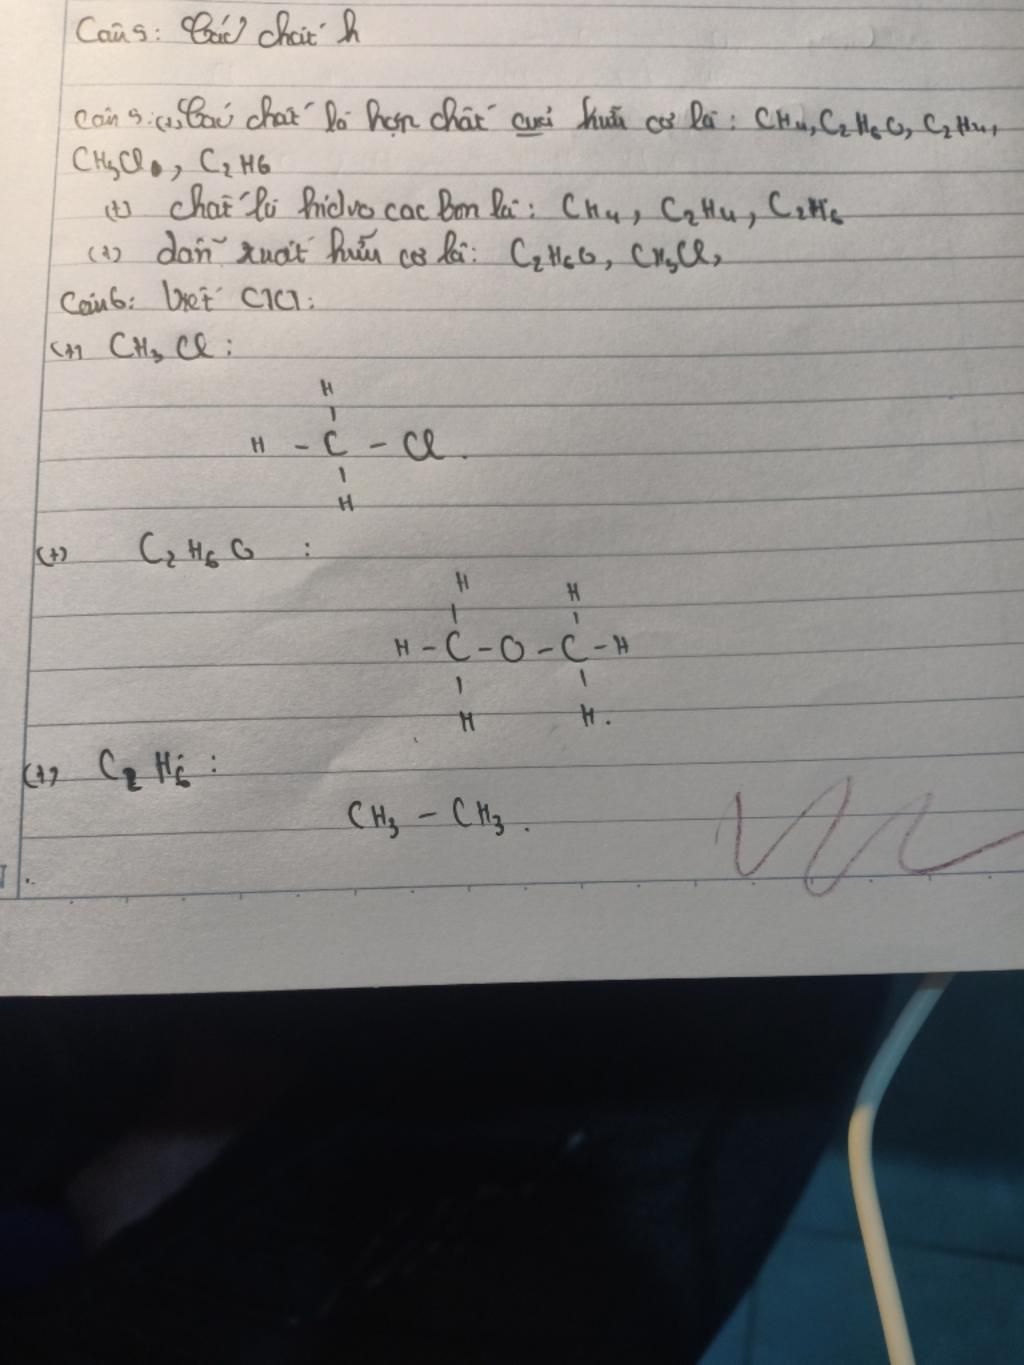 Câu 5: Các chất h
Câu 5: (+) Các chất là hợp chất hữu cơ là: CH4, C2H6O, C2H4,
CH3Cl, C2H6
(+) chất là hidro cac bon là: CH4, C2H4, C2H6
(+) dẫn xuất hữu cơ là: C2H6O, CH3Cl,
Câu 6: Viết CTCT:
(+) CH3Cl:
H
H - C - Cl.
H
(+) C2H6O :
H H
H - C - O - C - H
H H.
(+) C2H6 :
CH3 - CH3.